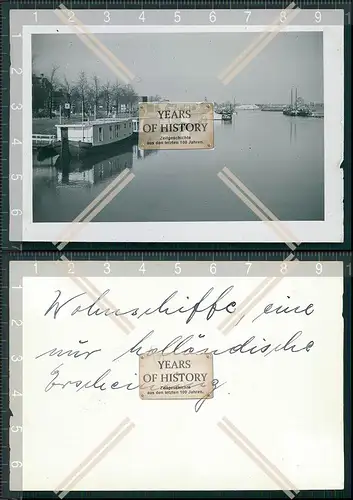 1 2 3 4 5 6 7 8 9
1
2
3
4
5
6
YEARS
OF HISTORY
Zeitgeschichte
aus den letzten 100 Jahren.
1 2 3 4 5 6 7 8 9
1
2
3
4
5
6
Wohnschiffe, eine
nur holländische
Erscheinung.
YEARS
OF HISTORY
Zeitgeschichte
aus den letzten 100 Jahren.